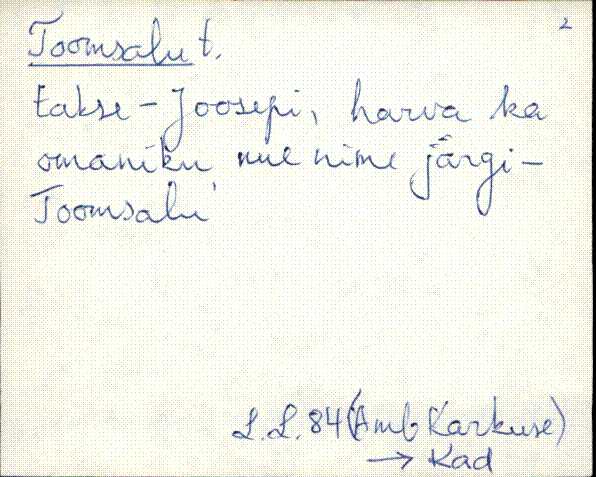 2
Toomsalu t.
Eakse - Joosepi, harva ka
omaniku uue nime järgi -
Toomsalu
L.L. 84 (Amb Karkuse)
→ Kad